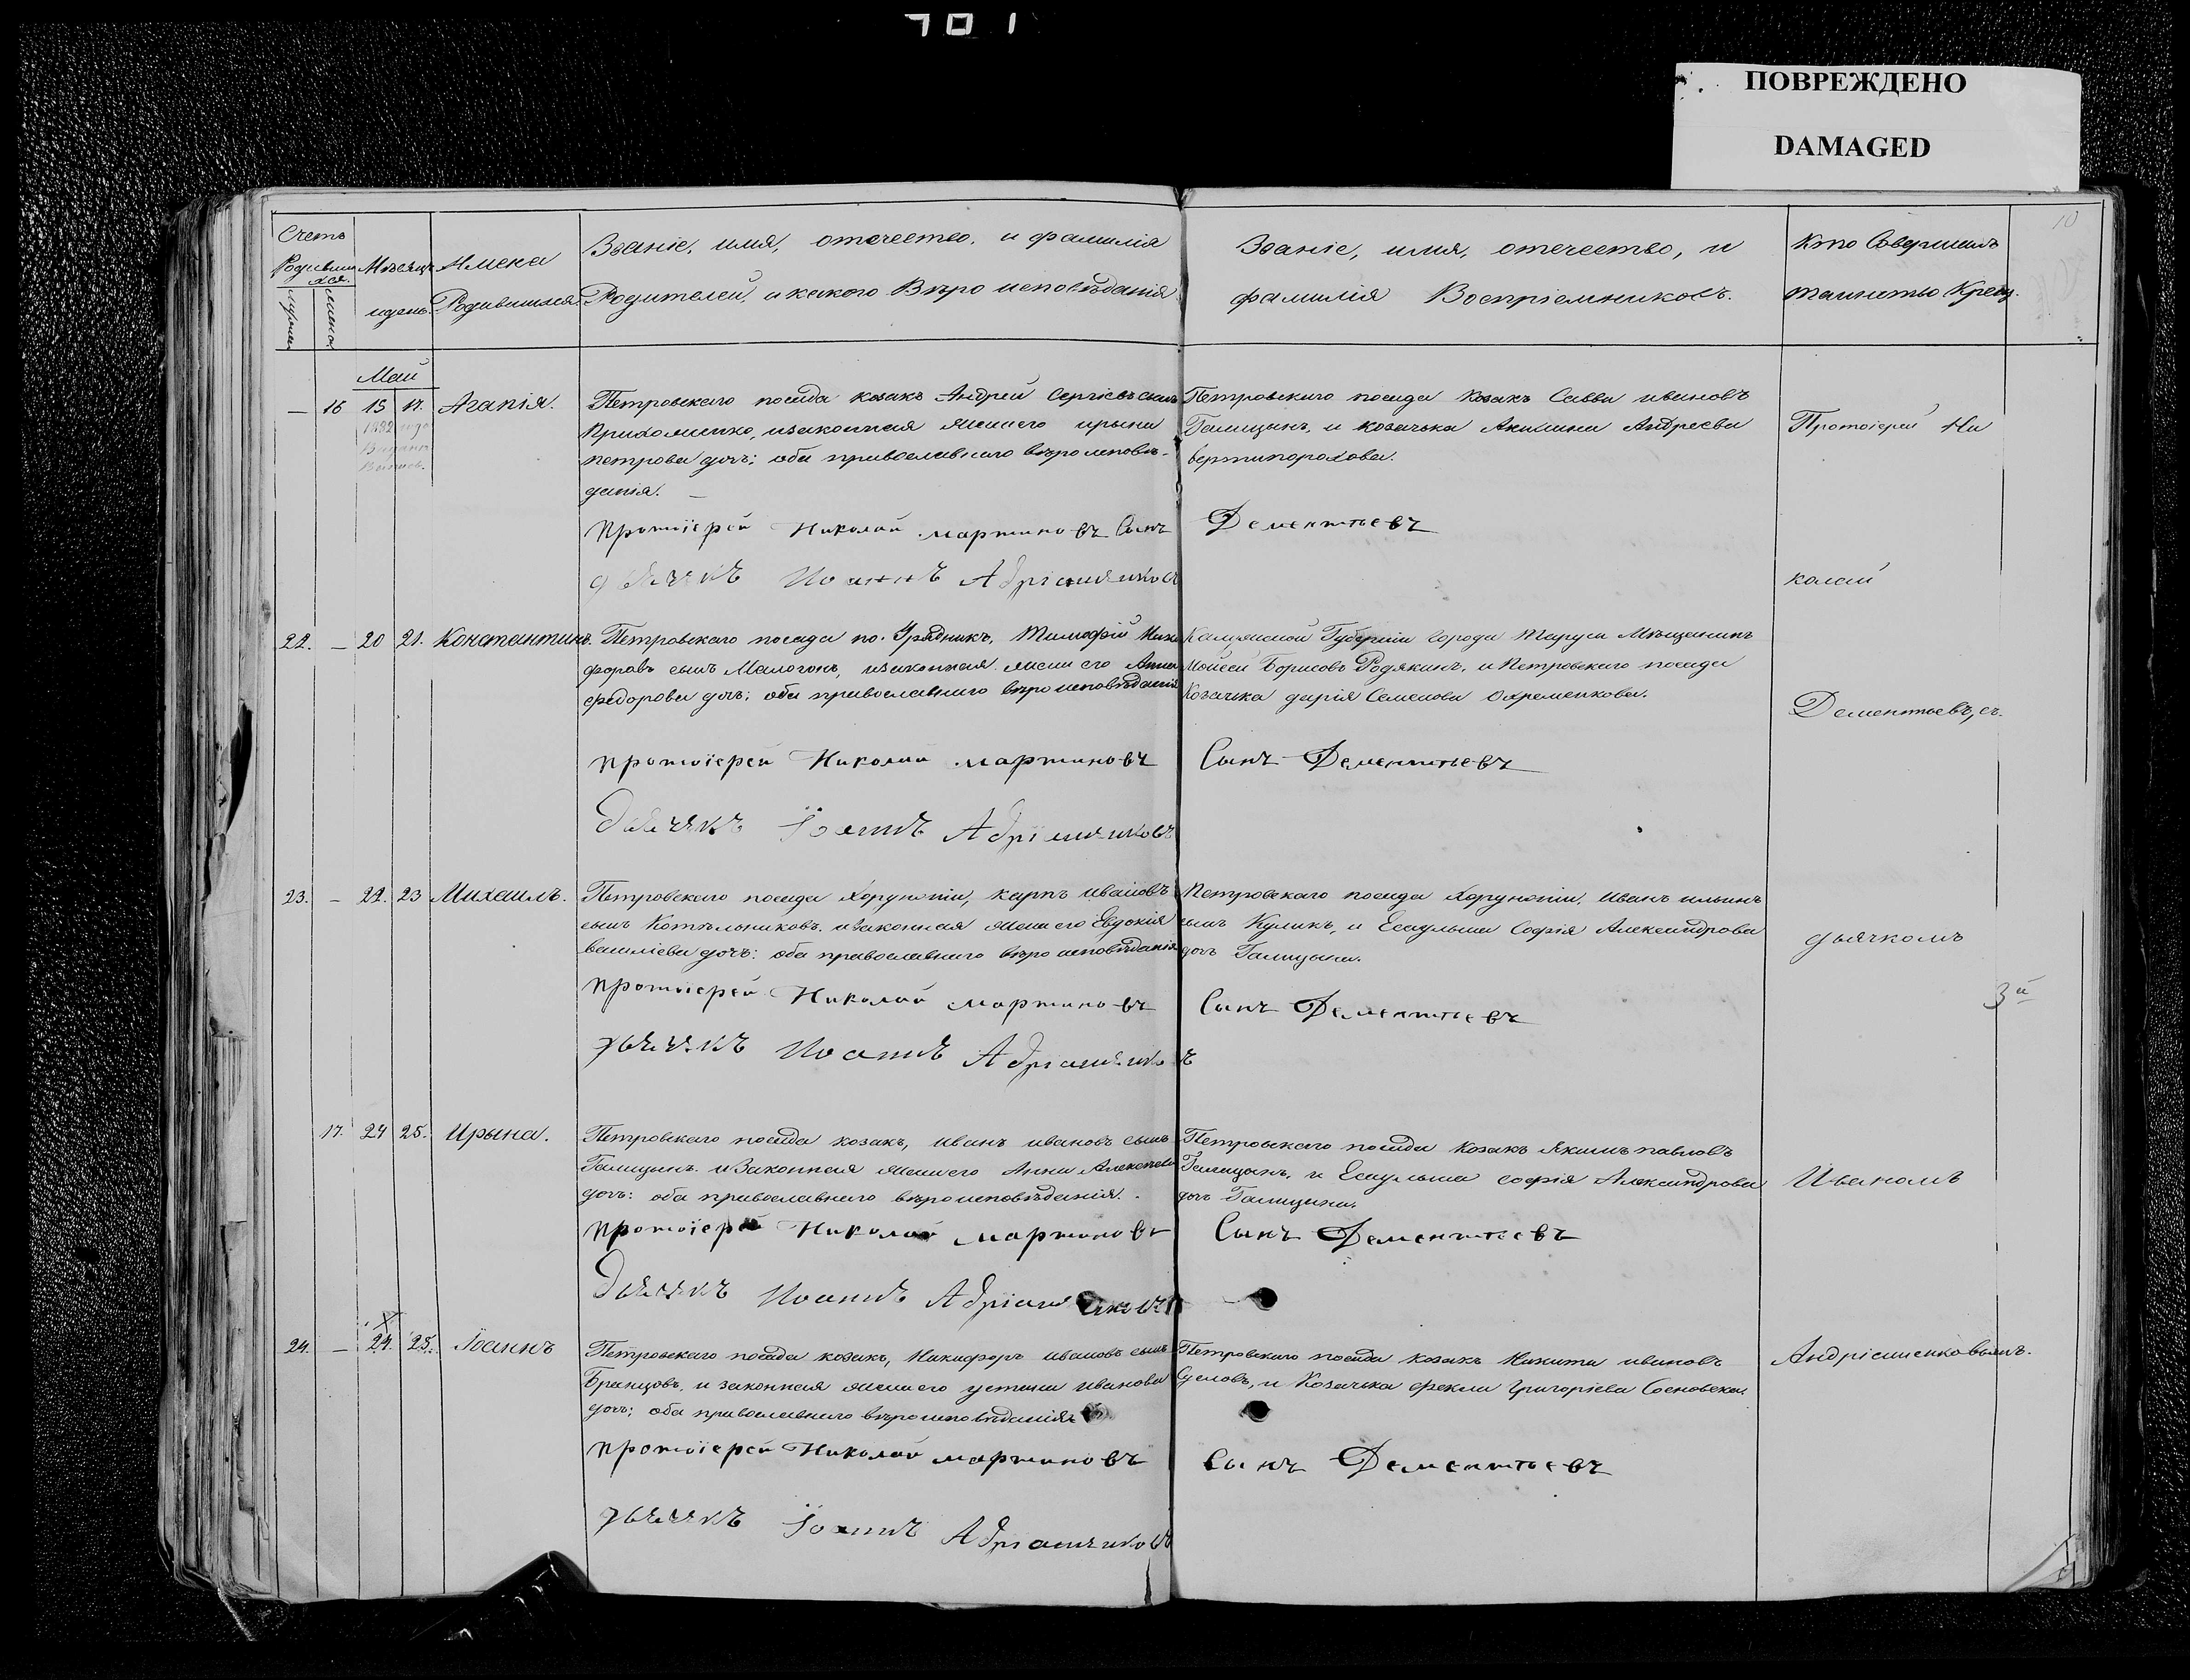 701
ПОВРЕЖДЕНО
DAMAGED
10
Счетъ
Родивши
хся.
Мѣсяцъ
и день.
Имена
Родившихся
Званіе, имя, отечество, и фамилія
Родителей, и какого Вѣро исповѣданія
Званіе, имя, отечество, и
фамилія Воспріемниковъ.
Кто Совершилъ
таинство Крещ.
Май
— 16 15 17. Агапія.
1882 года
Выданъ
Петровскаго посада козакъ Андрей Сергіевъ сынъ
изаконная жена его ирына
петрова дочь; оба православнаго вѣро исповѣ-
данія. —
Протоіерей Николай мартиновъ Сынъ Дементьевъ
дьячкъ Иоаннъ
Петровскаго посада Козакъ Савва ивановъ
Галицынъ, и козачька Акилина Андреева
вертипорохова.
Протоіерей Ни
колай
22. — 20 21. Константинъ.
Петровскаго посада по. Урядникъ, Тимофій Ники
форовъ сынъ Малогонъ, изаконная жена его Анна
федорова дочь; оба православнаго вѣро исповѣданія
протоіерей Николай мартиновъ Сынъ Дементьевъ
Дьячкъ Іоаннъ
Калужской Губерніи города Таруси Мѣщанинъ
Мойсей Борисовъ Родякинъ, и Петровскаго посада
Козачька дарія Семенова Охременкова.
Дементьевъ, съ.
23. — 22. 23 Михаилъ.
Петровскаго посада Хорунжій, карпъ ивановъ
сынъ Котельниковъ. изаконная жена его Евдокія
василіева дочь: оба православнаго вѣро исповѣданія
протоіерей Николай мартиновъ Сынъ Дементьевъ
дьячкъ Иоаннъ
Петровскаго посада Хорунжій, Иванъ ильинъ
сынъ Куликъ, и Есаульша Софія Александрова
дочь Галицына.
дьячкомъ
3й
17. 24 25. Ирына.
Петровскаго посада козакъ, иванъ ивановъ сынъ
Галицынъ. и Законная жена его Анна Алексѣева
дочь: оба православнаго вѣро исповѣданія.
протоіерей Николай мартиновъ Сынъ Дементьевъ
Дьячкъ Иоаннъ
Петровскаго посада Козакъ Якимъ павловъ
Галицынъ, и Есаульша софія Александрова
дочь Галицына.
Иваномъ
24. — 24. 25. Іоаннъ
Петровскаго посада козакъ, Никифоръ ивановъ сынъ
Бранцовъ, и законная жена его устина Иванова
дочь; оба православнаго вѣро исповѣданія
протоіерей Николай мартиновъ Сынъ Дементьевъ
дьячкъ Іоаннъ
Петровскаго посада козакъ Никита ивановъ
и Козачька фекла Григоріева Сосновска.
Андріаненковымъ.